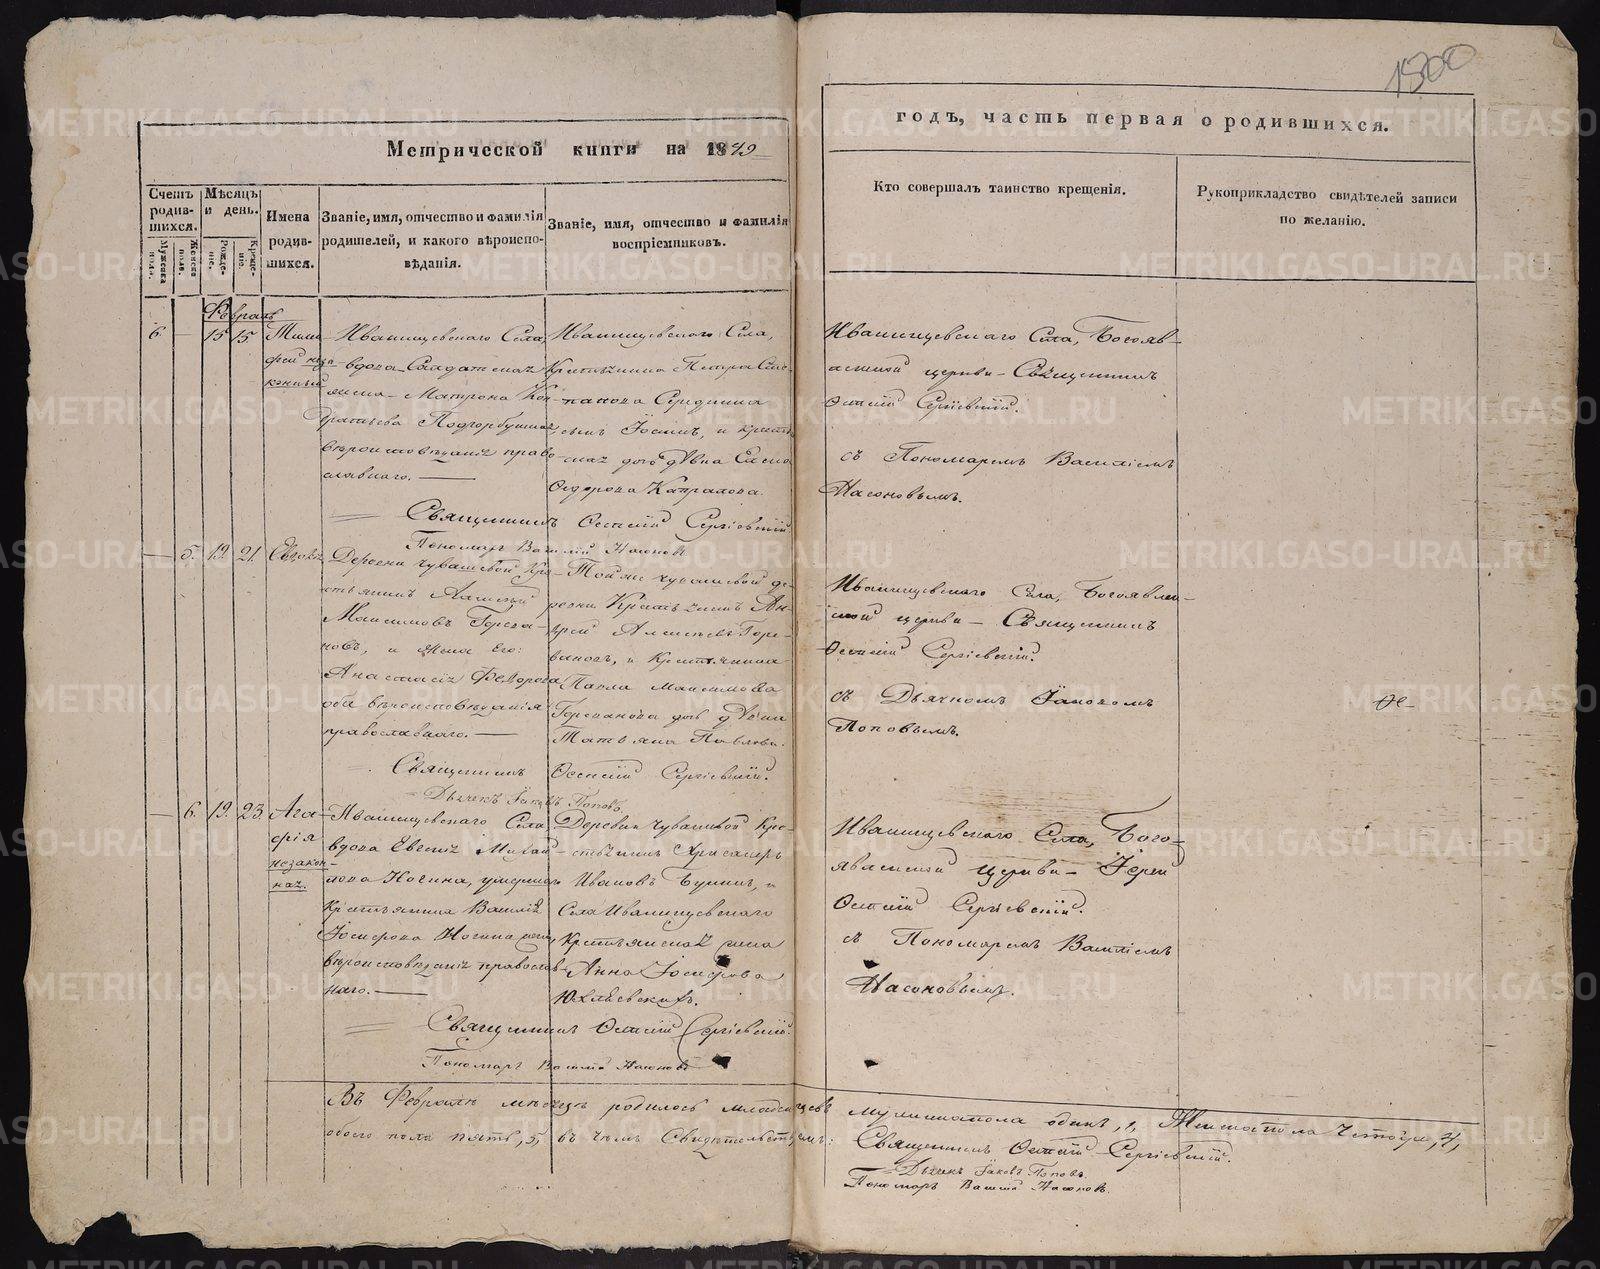 1300
Метрической книги на 1849
годъ, часть первая о родившихся.
Счетъ родив-шихся.
Мужеска полъ.
Женска полъ.
Мѣсяцъ и день.
Рожде-ніе.
Креще-ніе.
Имена родив-шихся.
Званіе, имя, отчество и фамилія
родителей, и какого вѣроиспо-
вѣданія.
Званіе, имя, отчество и фамилія
воспріемниковъ.
Кто совершалъ таинство крещенія.
Рукоприкладство свидѣтелей записи
по желанію.
Февраль
6. — 15 15.
Тимо-
фей неза-
конный
Иванищевскаго Села,
вдова Солдатская
жена Матрона Кон-
дратьева Подгорбунская
вѣроисповѣданія право-
славнаго.
Иванищевскаго Села,
Крестьянина Петра Сте-
панова Середкина
сынъ Іоаннъ, и кресть-
янская дочь дѣвка Елена
Сидорова Капралова.
Иванищевскаго Села, Богояв-
ленской церкви Священникъ
Евсевій Сергіевскій.
съ Пономаремъ Василіемъ
Насоновымъ.
Священникъ Евсевій Сергіевскій
Пономарь Василій Насоновъ
— 5. 19. 21.
Евдокія
Деревни Чувашевой Кре-
стьянинъ Алексѣй
Максимовъ Горева-
новъ, и жена его
Анастасія Федорова
оба вѣроисповѣданія
православнаго.
Той же Чувашевой де-
ревни Крестьянинъ Ан-
дрей Алексѣевъ Горе-
вановъ, и Крестьянина
Павла Максимова
Гореванова дочь дѣвка
Татьяна Павлова.
Иванищевскаго Села, Богоявлен-
ской церкви Священникъ
Евсевій Сергіевскій.
съ Дьячкомъ Іаковомъ
Поповымъ.
Священникъ Евсевій Сергіевскій.
Дьячекъ Іаковъ Поповъ.
— 6. 19. 23.
Ага-
фія
незакон-
ная.
Иванищевскаго Села
вдова Евгенія Михай-
лова Ногина, умершаго
Крестьянина Василія
Іосифова Ногина жена,
вѣроисповѣданія православ-
наго.
Деревни Чувашевой Кре-
стьянинъ
Ивановъ и
Села Иванищевскаго
Крестьянская жена
Анна Іосифова
Юхлевскихъ.
Иванищевскаго Села, Бого-
явленской церкви Іерей
Евсевій Сергіевскій.
съ Пономаремъ Василіемъ
Насоновымъ.
Священникъ Евсевій Сергіевскій.
Пономарь Василій Насоновъ
Въ Февралѣ мѣсяцѣ родилось младенцевъ мужеска пола одинъ, 1, Женска пола четыре, 4,
обоего пола пять, 5, въ чемъ Свидѣтельствуемъ: Священникъ Евсевій Сергіевскій.
Дьячекъ Іаковъ Поповъ.
Пономарь Василій Насоновъ.
METRIKI.GASO-URAL.RU